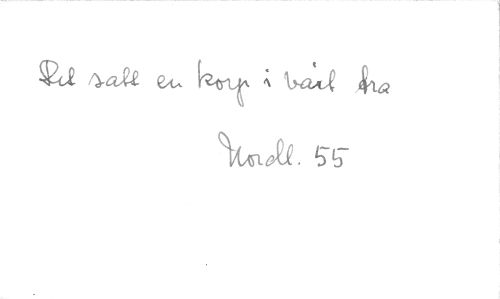 Det satt en korp i vårt fra
Nordl. 55